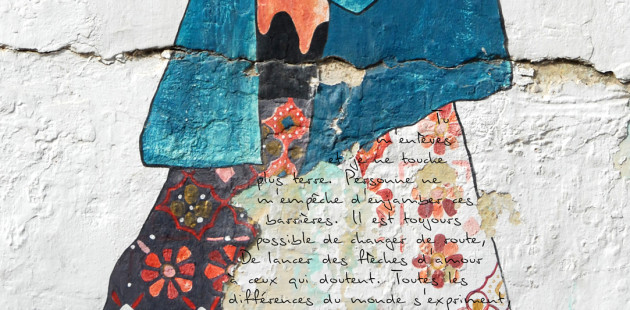 Tu
m'enlèves
je ne touche
plus terre. Personne ne
m'empêche d'enjamber ces
barrières. Il est toujours
possible de changer de route,
De lancer des flèches d'amour
à ceux qui doutent. Toutes les
différences du monde s'expriment